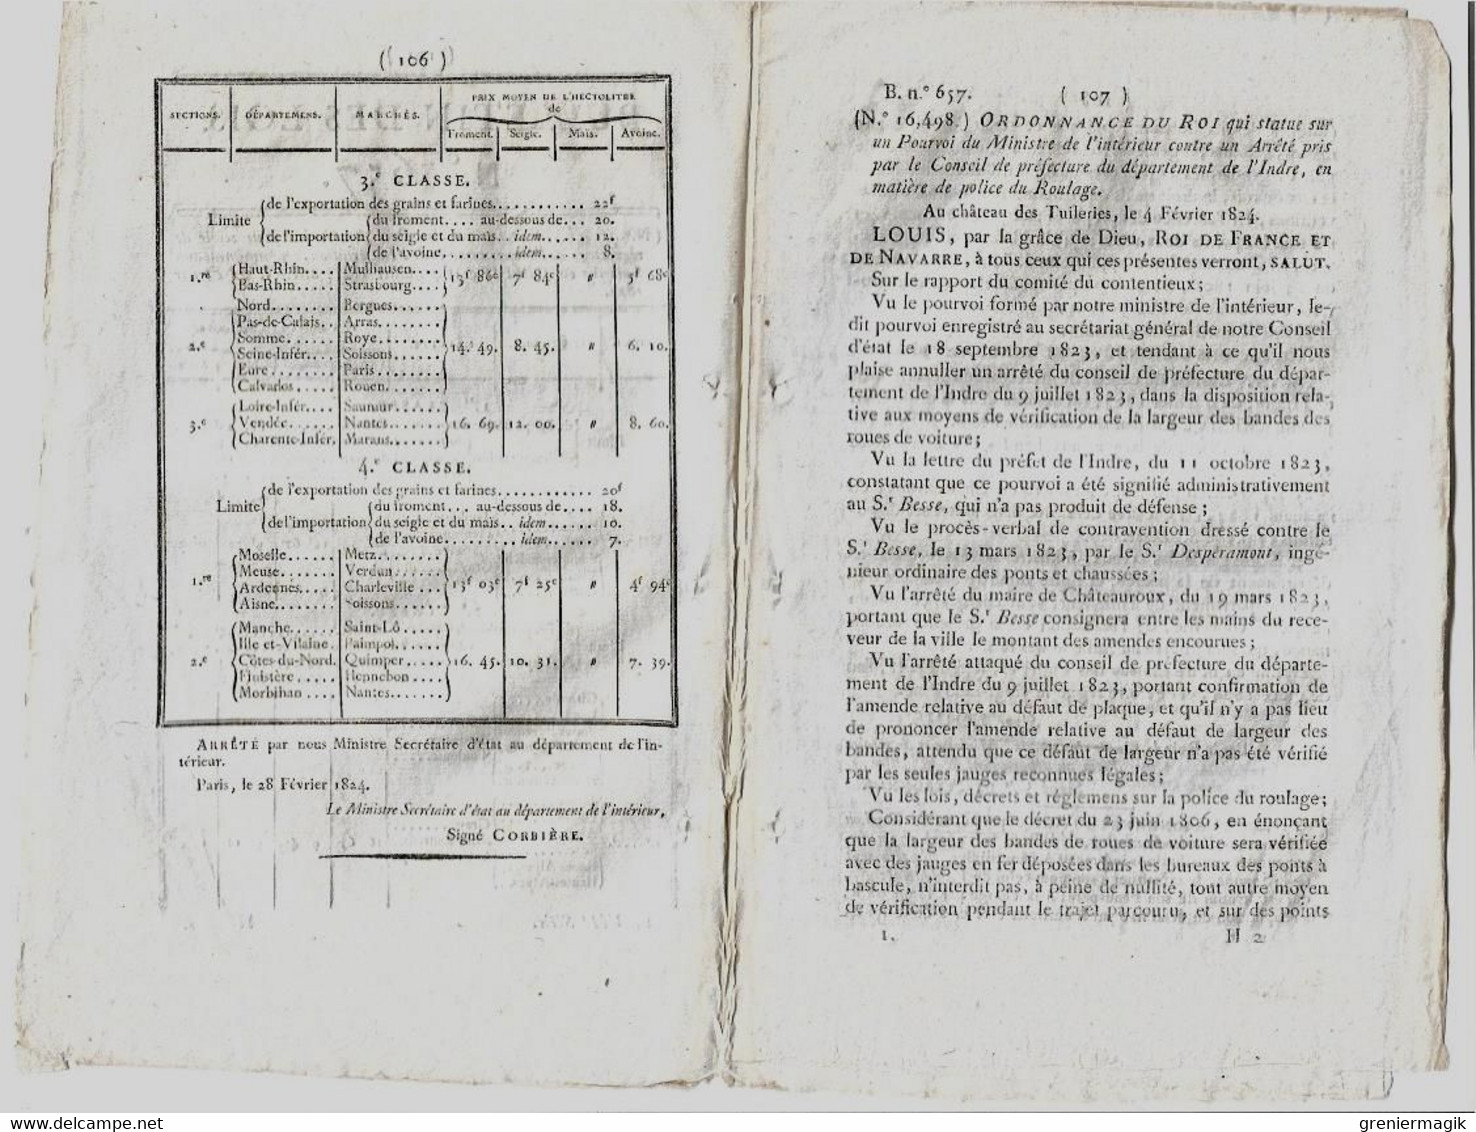 ( 106 )
SECTIONS. DÉPARTEMENS. MARCHÉS. PRIX MOYEN DE L'HECTOLITRE
de
Froment. Seigle. Maïs. Avoine.
3.e CLASSE.
Limite
de l'exportation des grains et farines............ 22f
de l'importation
du froment.... au-dessous de... 20.
du seigle et du maïs.. idem...... 12.
de l'avoine......... idem...... 8.
1.re Haut-Rhin.... Mulhausen.... 13f 86c 7f 84c " 5f 68c
Bas-Rhin..... Strasbourg....
2.e Nord........ Bergues...... 14. 49. 8. 45. " 6. 10.
Pas-de-Calais.. Arras........
Somme...... Roye........
Seine-Infér.... Soissons......
Eure........ Paris........
Calvados..... Rouen.......
3.e Loire-Infér.... Saumur...... 16. 69. 12. 00. " 8. 60.
Vendée...... Nantes.......
Charente-Infér. Marans.......
4.e CLASSE.
Limite
de l'exportation des grains et farines............ 20f
de l'importation
du froment... au-dessous de.... 18.
du seigle et du maïs.. idem...... 10.
de l'avoine......... idem...... 7.
1.re Moselle...... Metz........ 13f 03c 7f 25c " 4f 94c
Meuse....... Verdun......
Ardennes..... Charleville...
Aisne........ Soissons......
2.e Manche...... Saint-Lô..... 16. 45. 10. 31. " 7. 39.
Ille et-Vilaine. Paimpol......
Côtes-du-Nord. Quimper.....
Finistère..... Hennebon....
Morbihan.... Nantes.......
ARRÊTÉ par nous Ministre Secrétaire d'état au département de l'in-
térieur.
Paris, le 28 Février 1824.
Le Ministre Secrétaire d'état au département de l'intérieur,
Signé CORBIÈRE.
B. n.° 657. ( 107 )
(N.° 16,498.) ORDONNANCE DU ROI qui statue sur
un Pourvoi du Ministre de l'intérieur contre un Arrêté pris
par le Conseil de préfecture du département de l'Indre, en
matière de police du Roulage.
Au château des Tuileries, le 4 Février 1824.
LOUIS, par la grâce de Dieu, ROI DE FRANCE ET
DE NAVARRE, à tous ceux qui ces présentes verront, SALUT.
Sur le rapport du comité du contentieux;
Vu le pourvoi formé par notre ministre de l'intérieur, le-
dit pourvoi enregistré au secrétariat général de notre Conseil
d'état le 18 septembre 1823, et tendant à ce qu'il nous
plaise annuller un arrêté du conseil de préfecture du dépar-
tement de l'Indre du 9 juillet 1823, dans la disposition rela-
tive aux moyens de vérification de la largeur des bandes des
roues de voiture;
Vu la lettre du préfet de l'Indre, du 11 octobre 1823,
constatant que ce pourvoi a été signifié administrativement
au S.r Besse, qui n'a pas produit de défense;
Vu le procès-verbal de contravention dressé contre le
S.r Besse, le 13 mars 1823, par le S.r Desperamont, ingé-
nieur ordinaire des ponts et chaussées;
Vu l'arrêté du maire de Châteauroux, du 19 mars 1823,
portant que le S.r Besse consignera entre les mains du rece-
veur de la ville le montant des amendes encourues;
Vu l'arrêté attaqué du conseil de préfecture du départe-
ment de l'Indre du 9 juillet 1823, portant confirmation de
l'amende relative au défaut de plaque, et qu'il n'y a pas lieu
de prononcer l'amende relative au défaut de largeur des
bandes, attendu que ce défaut de largeur n'a pas été vérifié
par les seules jauges reconnues légales;
Vu les lois, décrets et réglemens sur la police du roulage;
Considérant que le décret du 23 juin 1806, en énonçant
que la largeur des bandes de roues de voiture sera vérifiée
avec des jauges en fer déposées dans les bureaux des ponts à
bascule, n'interdit pas, à peine de nullité, tout autre moyen
de vérification pendant le trajet parcouru, et sur des points
1. H 2
greniermagik